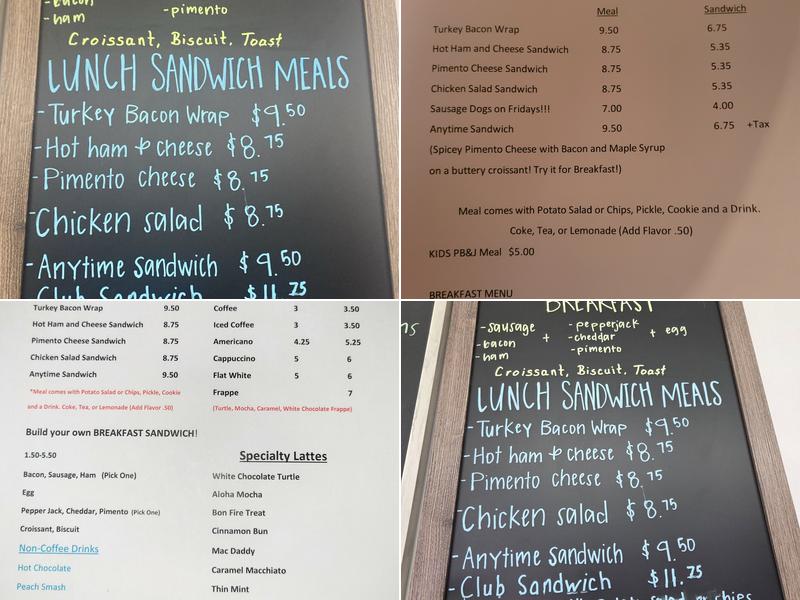 -bacon
-ham
-pimento
Croissant, Biscuit, Toast
LUNCH SANDWICH MEALS
-Turkey Bacon Wrap $9.50
-Hot ham & cheese $8.75
-Pimento cheese $8.75
-Chicken salad $8.75
-Anytime Sandwich $9.50
Club Sandwich $11.75
Meal Sandwich
Turkey Bacon Wrap 9.50 6.75
Hot Ham and Cheese Sandwich 8.75 5.35
Pimento Cheese Sandwich 8.75 5.35
Chicken Salad Sandwich 8.75 5.35
Sausage Dogs on Fridays!!! 7.00 4.00
Anytime Sandwich 9.50 6.75 +Tax
(Spicey Pimento Cheese with Bacon and Maple Syrup
on a buttery croissant! Try it for Breakfast!)
Meal comes with Potato Salad or Chips, Pickle, Cookie and a Drink.
Coke, Tea, or Lemonade (Add Flavor .50)
KIDS PB&J Meal $5.00
BREAKFAST MENU
Turkey Bacon Wrap 9.50
Hot Ham and Cheese Sandwich 8.75
Pimento Cheese Sandwich 8.75
Chicken Salad Sandwich 8.75
Anytime Sandwich 9.50
*Meal comes with Potato Salad or Chips, Pickle, Cookie
and a Drink. Coke, Tea, or Lemonade (Add Flavor .50)
Coffee 3 3.50
Iced Coffee 3 3.50
Americano 4.25 5.25
Cappuccino 5 6
Flat White 5 6
Frappe 7
(Turtle, Mocha, Caramel, White Chocolate Frappe)
Build your own BREAKFAST SANDWICH!
1.50-5.50
Bacon, Sausage, Ham (Pick One)
Egg
Pepper Jack, Cheddar, Pimento (Pick One)
Croissant, Biscuit
Non-Coffee Drinks
Hot Chocolate
Peach Smash
Specialty Lattes
White Chocolate Turtle
Aloha Mocha
Bon Fire Treat
Cinnamon Bun
Mac Daddy
Caramel Macchiato
Thin Mint
BREAKFAST
-sausage
-bacon
-ham
+
-pepperjack
-cheddar
-pimento
+ egg
Croissant, Biscuit, Toast
LUNCH SANDWICH MEALS
-Turkey Bacon Wrap $9.50
-Hot ham & cheese $8.75
-Pimento cheese $8.75
-Chicken salad $8.75
-Anytime Sandwich $9.50
-Club Sandwich $11.75
salad or chips